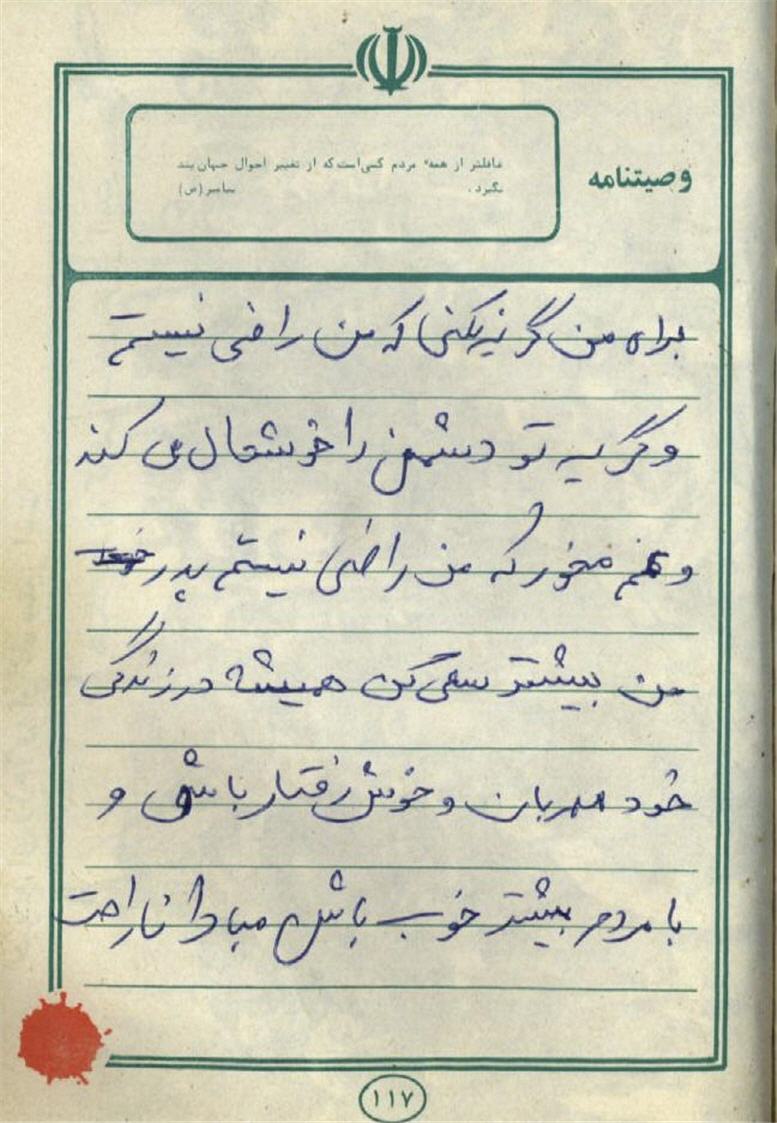 وصیتنامه
غافلتر از همه مردم کسی است که از تغییر احوال جهان پند
نگیرد . پیامبر (ص)
برای من گریه نکنی که من راضی نیستم
و گریه تو دشمن را خوشحال می کند
و غم مخور که من راضی نیستم پدر
من بیشتر سعی کن همیشه در زندگی
خود مهربان و خوش رفتار باشی و
با مردم بیشتر خوب باش مبادا ناراحت
۱۱۷